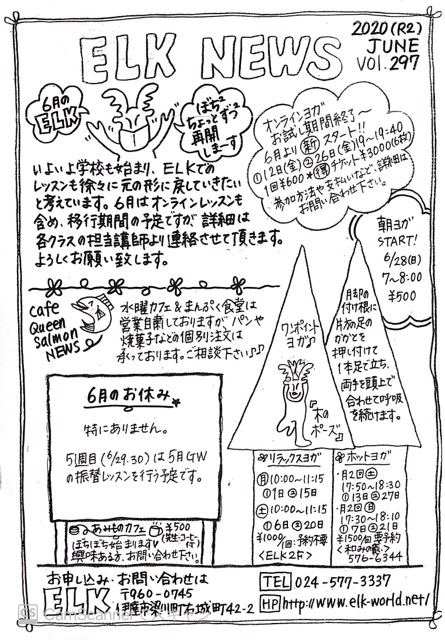 ELK NEWS
2020 (R2)
JUNE
VOL.297
6月の
ELK
ぼちぼち
ちょっとずつ
再開
しまーす
いよいよ学校も始まり、ELKでの
レッスンも徐々に元の形に戻していきたい
と考えています。6月はオンラインレッスンも
含め、移行期間の予定ですが、詳細は
各クラスの担当講師より連絡させて頂きます。
よろしくお願い致します。
オンラインヨガ
お試し期間終了〜
6月より新スタート!!
①12日(金)②26日(金)19〜19:40
1回¥600 チケット¥3000(6枚)
参加方法や支払いなど、詳細は
お問い合わせ下さい。
朝ヨガ
START!
6/28(日)
7〜8:00
¥500
cafe
Queen
Salmon
NEWS
水曜カフェ&まんぷく食堂は
営業自粛しておりますが、パンや
焼菓子などの個別注文は
承っております。ご相談下さい♪
ワンポイント
ヨガ♪
『木の
ポーズ』
月却の
付け根に
片方の足の
かかとを
押し付けて
1本足で立ち、
両手を頭上で
合わせて呼吸
を続けます。
6月のお休み
特にありません。
5週目(6/29.30)は5月GW
の振替レッスンを行う予定です。
あみものカフェ
¥500
ぼちぼち始まります
興味ある方、お問い合わせ下さい。
リラックスヨガ
月10:00〜11:15
①1日②15日
土10:00〜11:15
①6日②20日
¥1000/1回・予約不要
<ELK2F>
ホットヨガ
・月2回土
17:50〜18:30
①13日②27日
・月2回日
17:30〜18:10
①7日②21日
¥1500 要予約
576-6344
お申し込み・お問い合わせは
ELK
〒960-0745
伊達市梁川町右城町42-2
TEL 024-577-3337
HP http://www.elk-world.net/